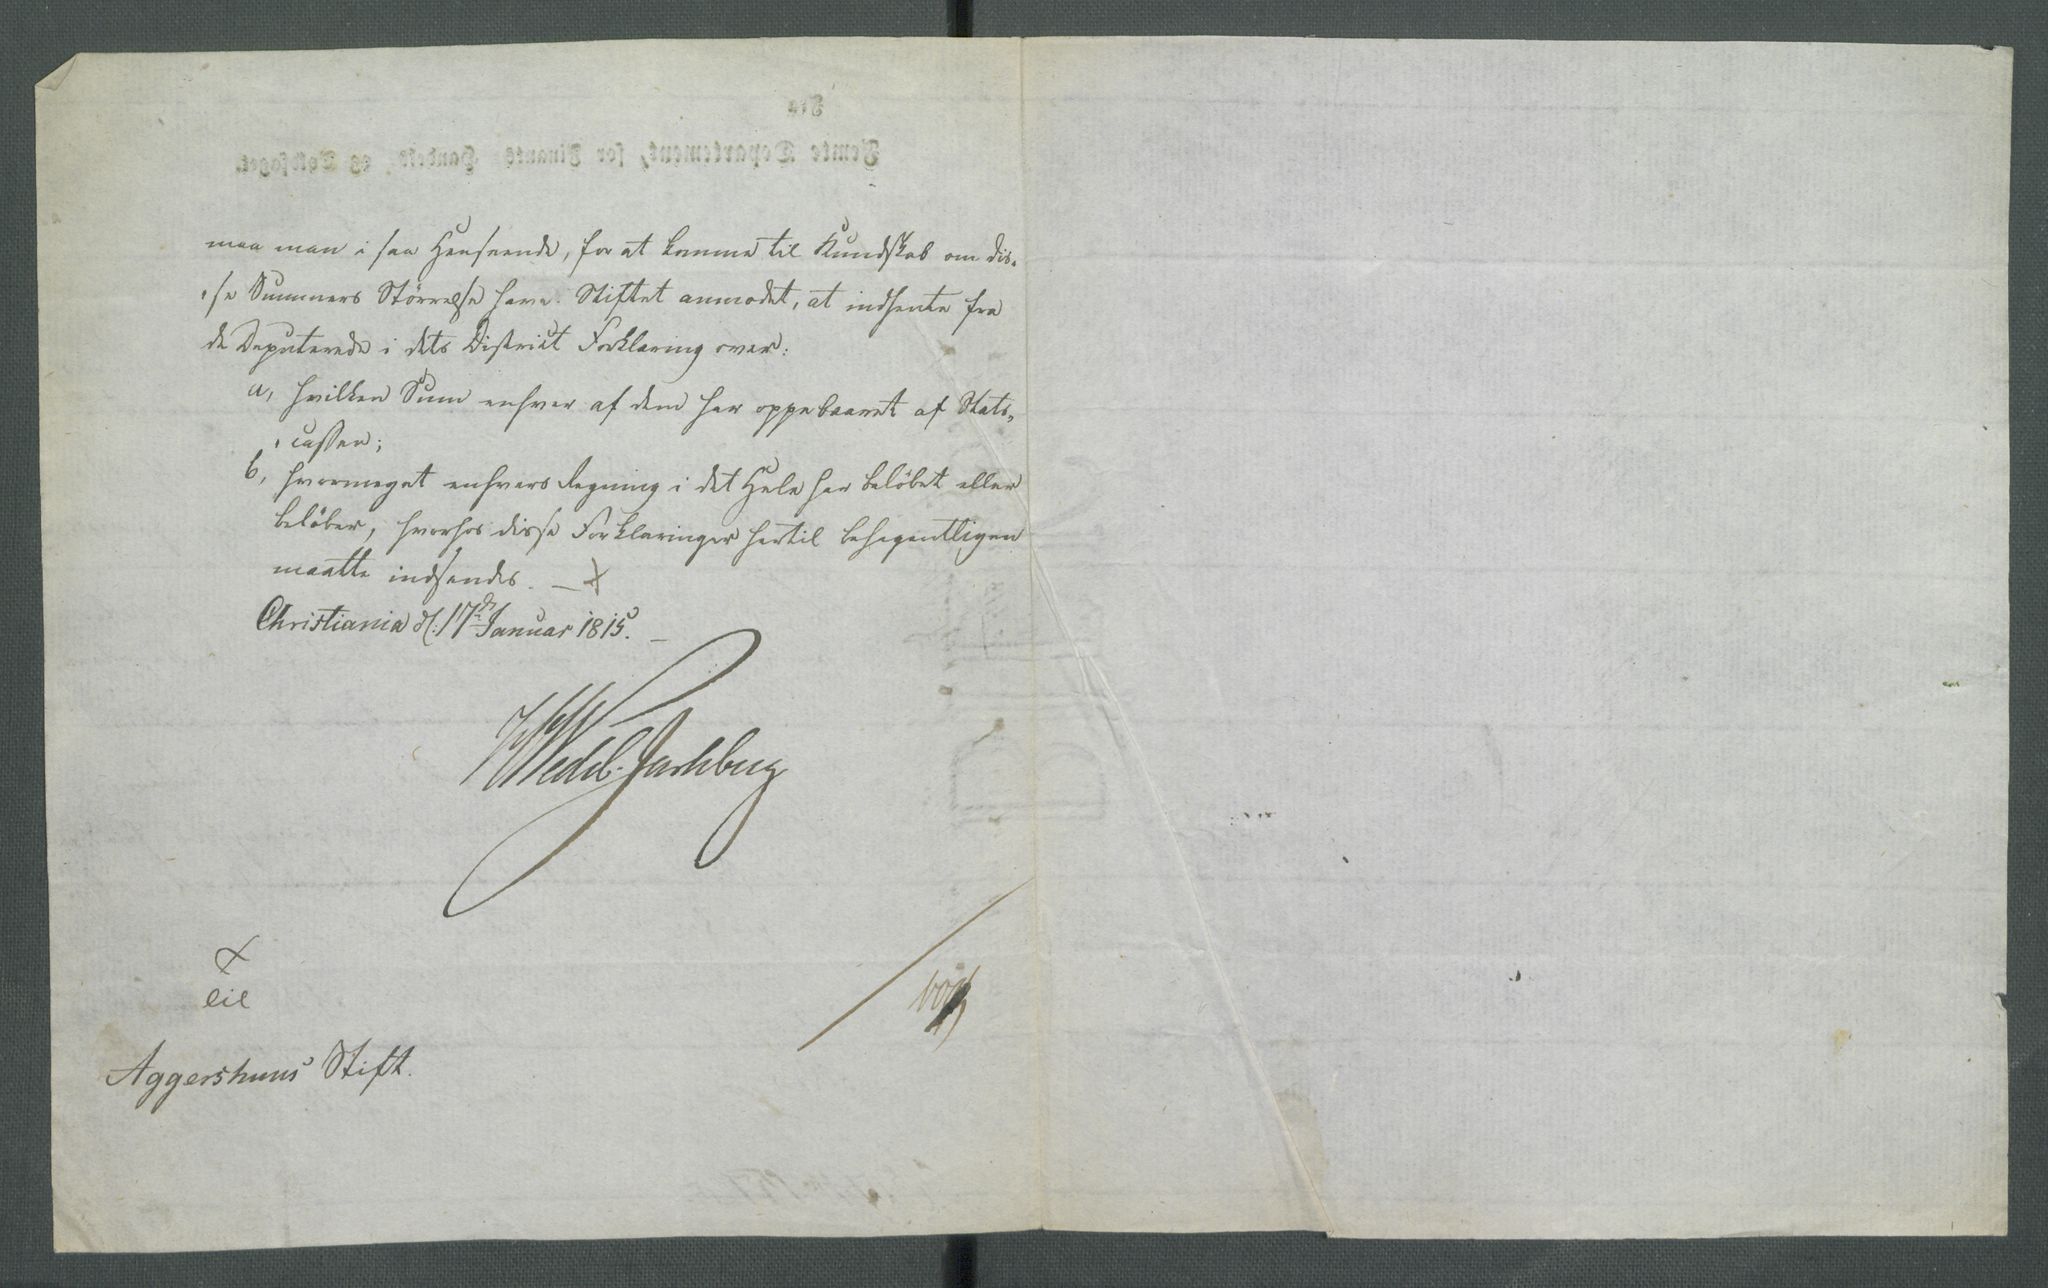 maa man i saa Henseende, for at komme til Kundskab om dis-
-se Summers Störrelse have Stiftet anmodet, at indhente fra
de Deputerede i dets District Forklaring over:
a, hvilken Sum enhver af dem har oppebaaret af Stats-
-cassen;
b, hvormeget enhvers Regning i det Hele har belöbet eller
belöber, hvorhos disse Forklaringer hertil behagentligen
maatte indsendes. —
Christiania d: 17de Januar 1815. —
Wedel Jarlsberg
til
Aggershuus Stift.